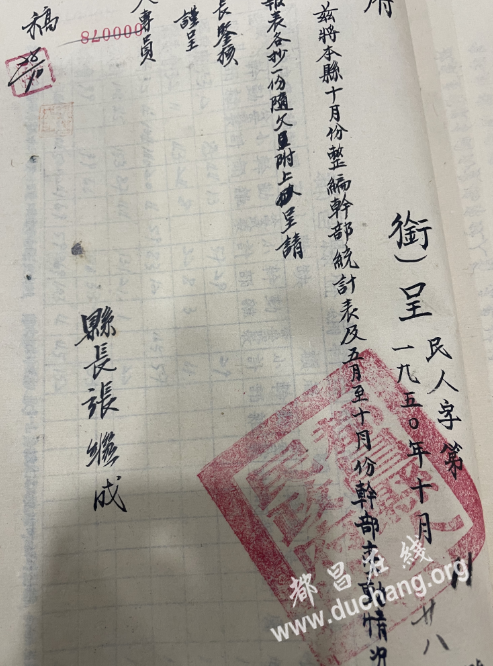 銜）呈 民人字第
一九五〇年十月廿八
茲將本縣十月份整編幹部統計表及五月至十月份幹部 情況
報表各抄一份隨文附上 呈請
長鑒核
謹呈
專員
縣長張繼成
稿
25/10
0000078
都昌在线
www.duchang.org